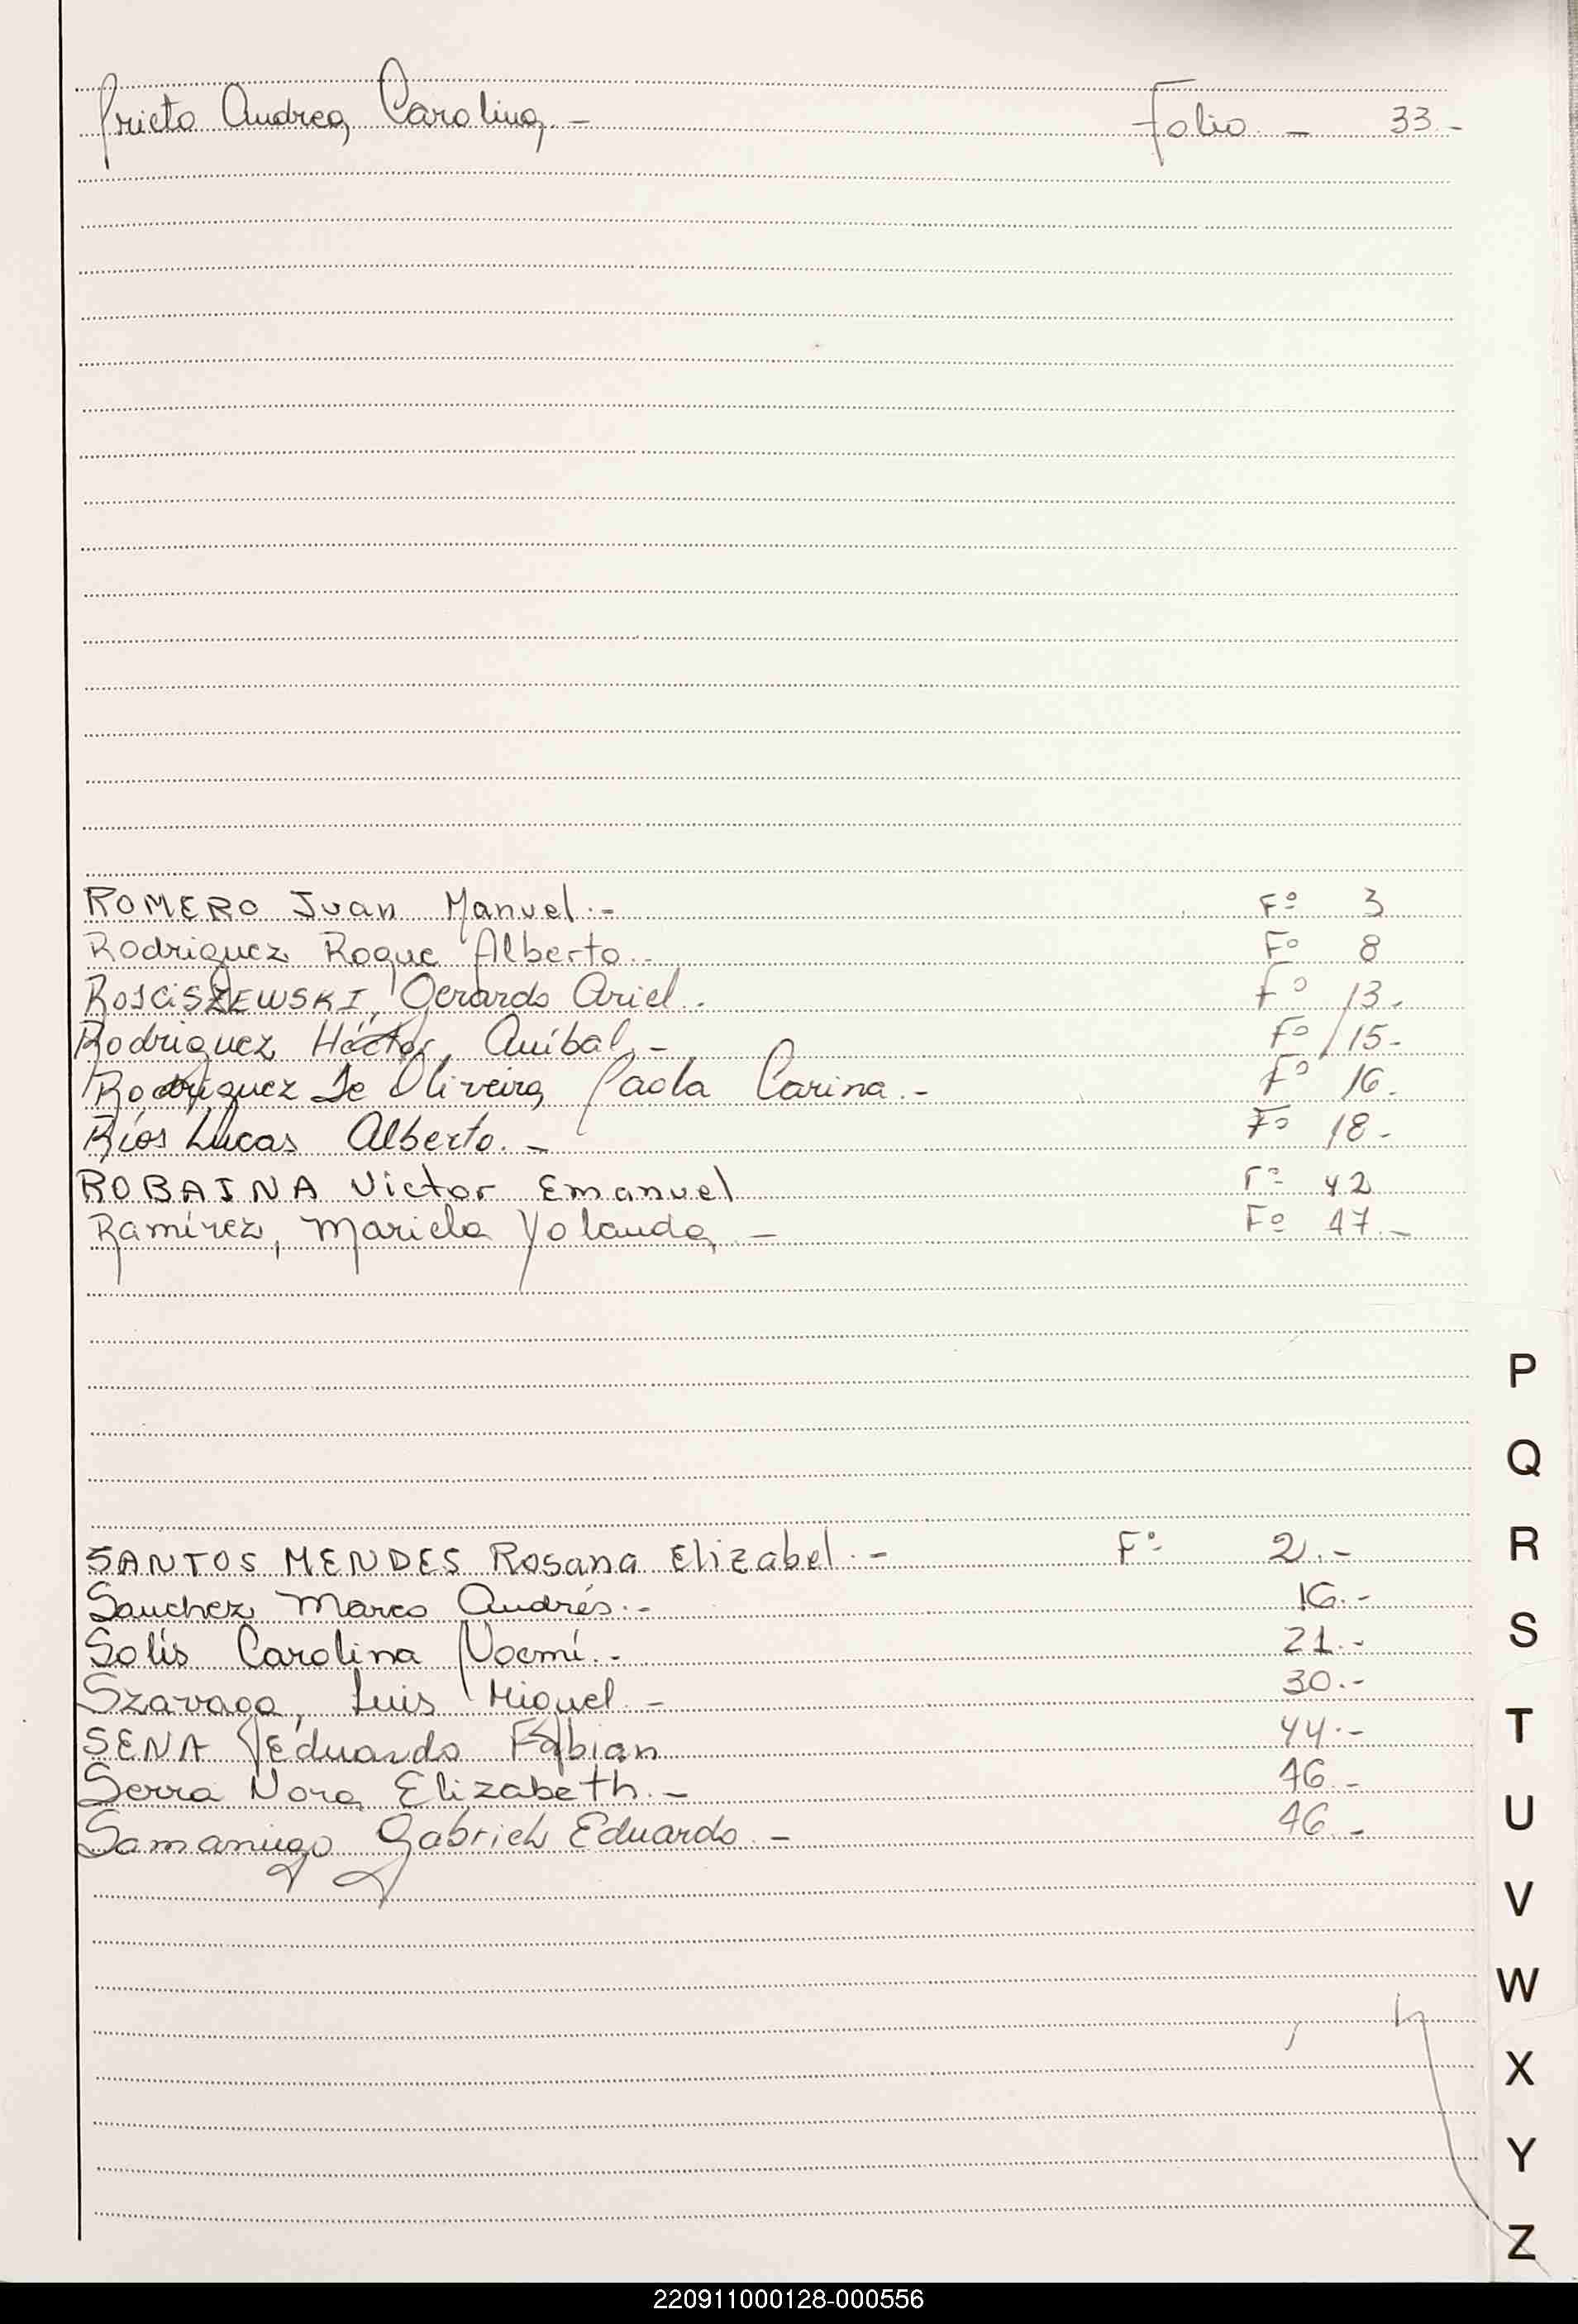 Prieto Andrea Carolina.- Folio - 33.-
ROMERO Juan Manuel.- Fº 3
Rodriguez Roque Alberto.- Fº 8
ROSCISZEWSKI, Gerardo Ariel.- Fº 13.
Rodriguez Héctor Aníbal.- Fº 15-
Rodriguez De Oliveira Paola Carina.- Fº 16.
Ríos Lucas Alberto.- Fº 18-
ROBAINA Victor Emanuel Fº 42
Ramírez, Mariela Yolanda.- Fº 47.-
SANTOS MENDES Rosana Elizabel.- Fº 2.-
Sanchez Marco Andrés.- 16.-
Solís Carolina Noemí.- 21.-
Szavaga, Luis Miguel.- 30.-
SENA Eduardo Fabian 44.-
Serra Nora Elizabeth.- 46-
Samaniego Gabriel Eduardo.- 46.-
P
Q
R
S
T
U
V
W
X
Y
Z
220911000128-000556